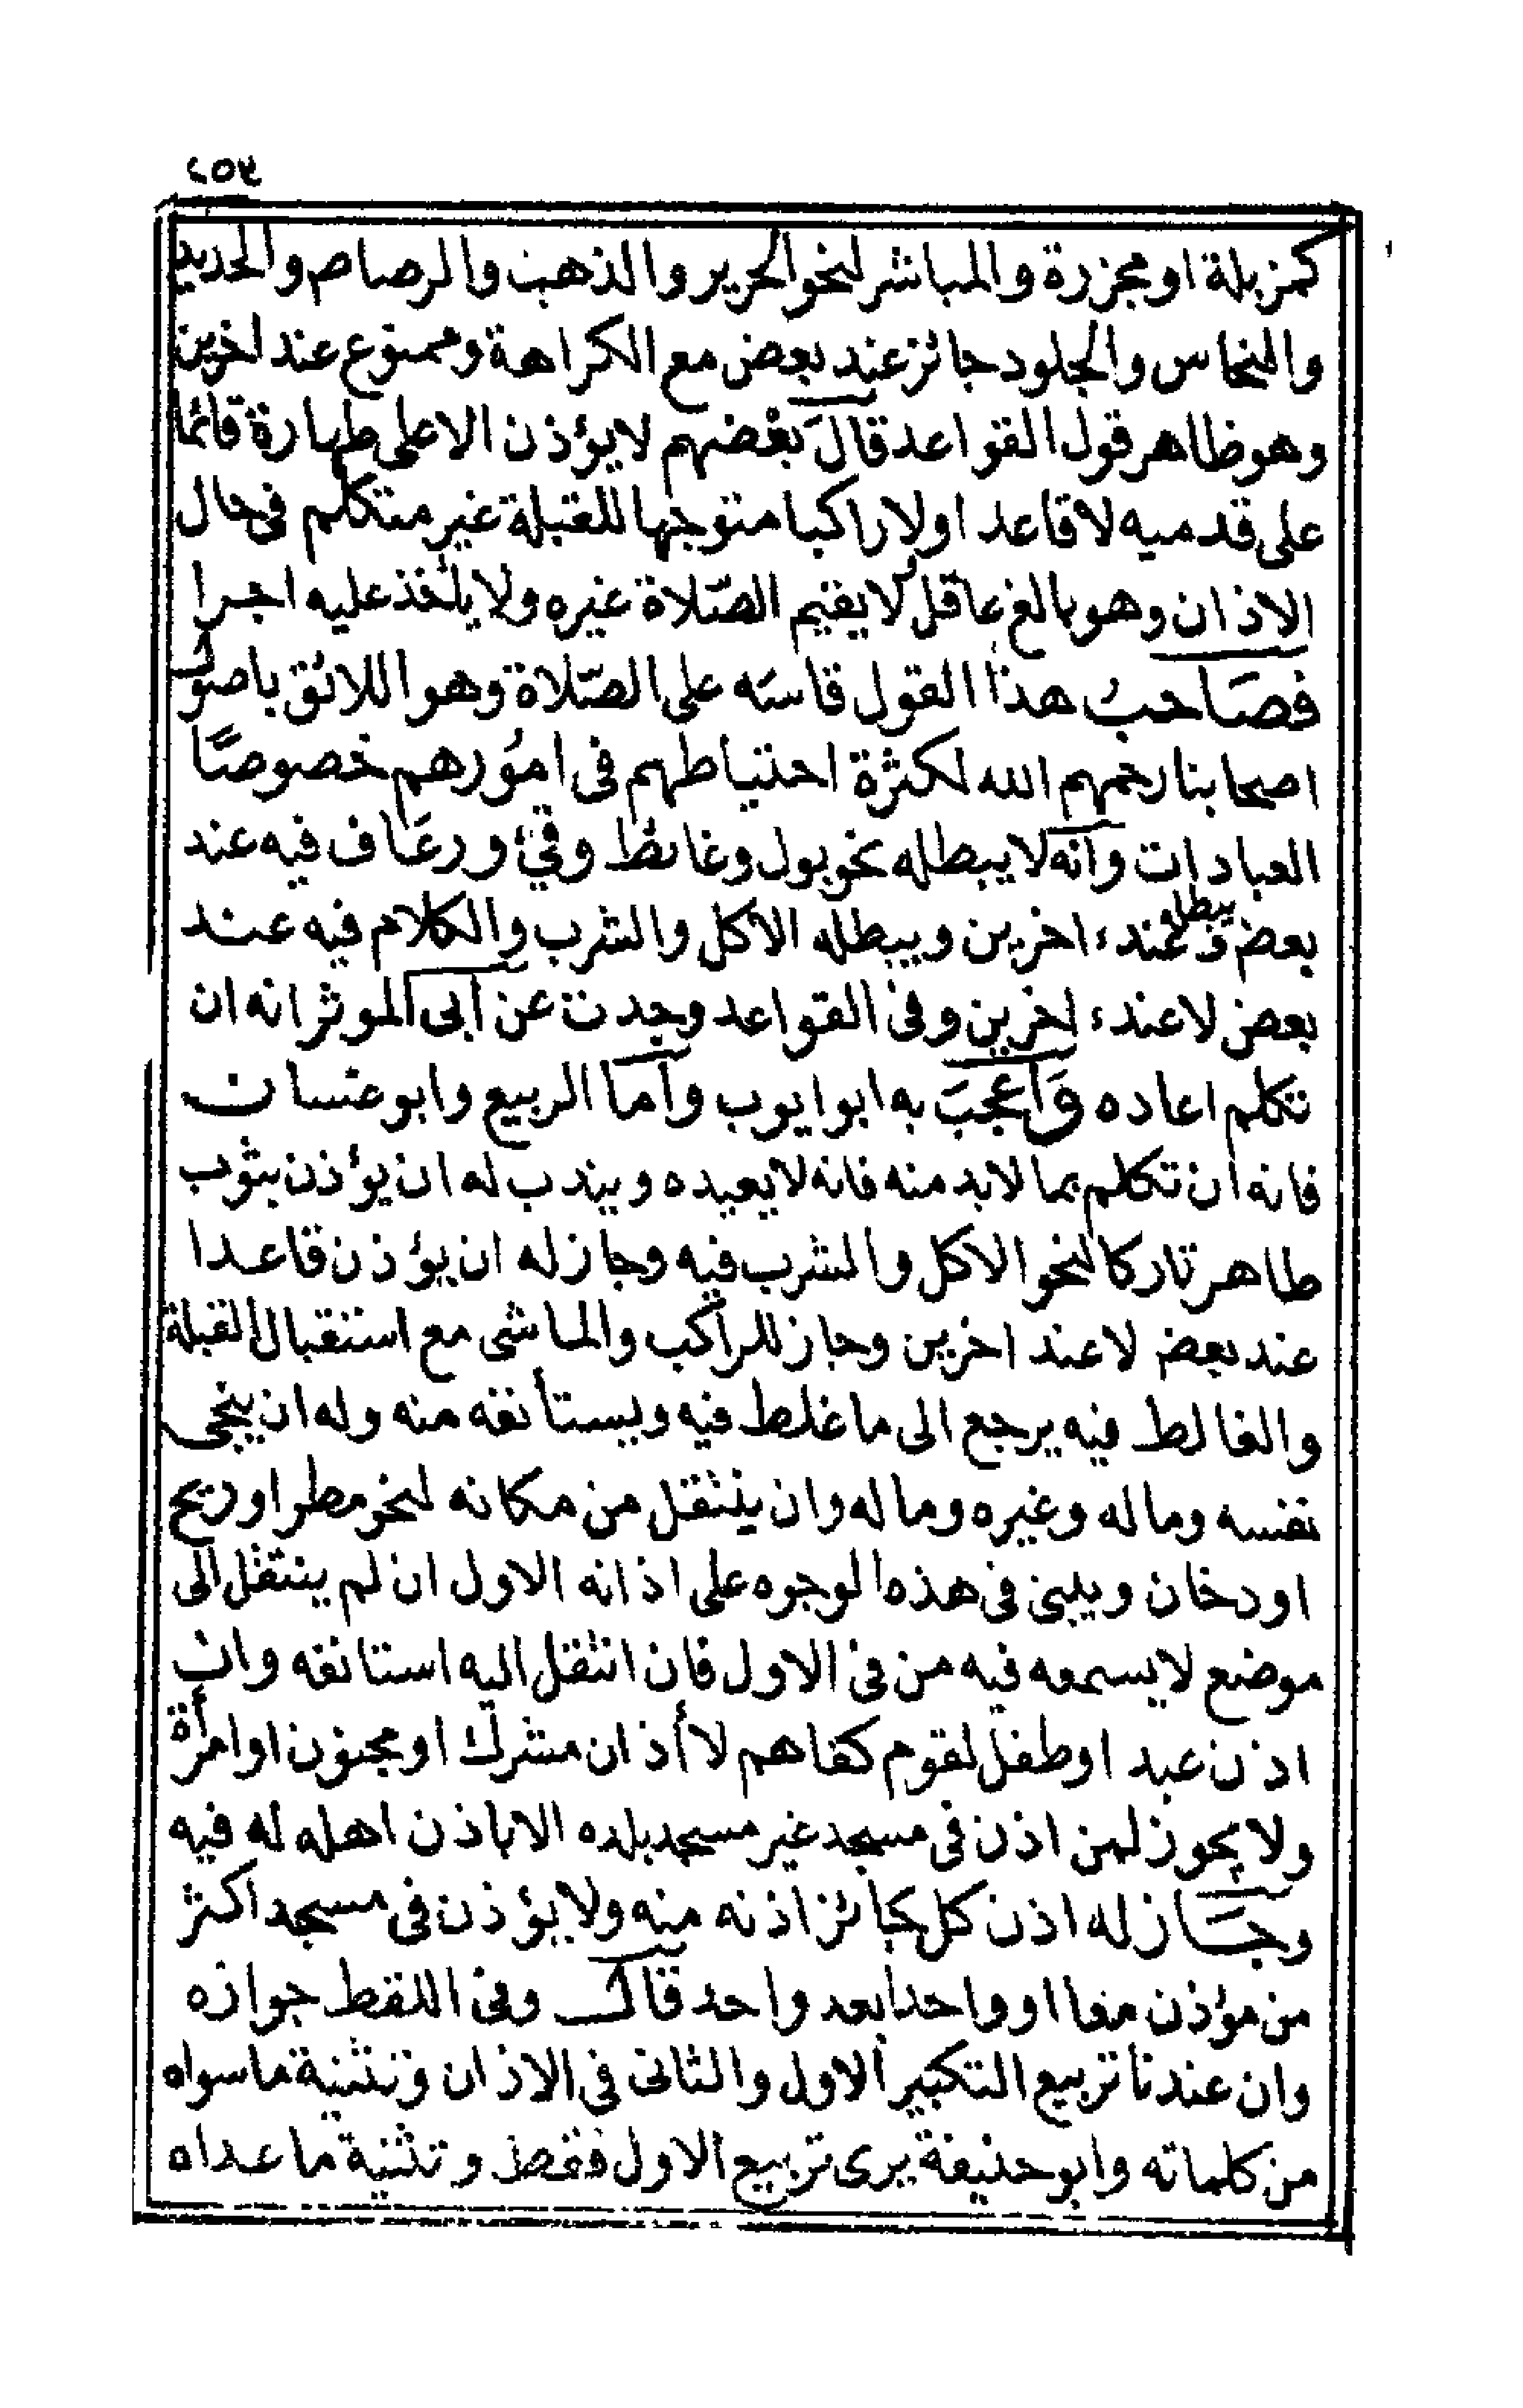 ٢٥٤
كمزبلة او مجزرة والمباشر لنحو الحرير والذهب والرصاص والحديد
والنحاس والجلود جائز عند بعض مع الكراهة وممنوع عند اخرين
وهو ظاهر قول القواعد قالَ بعْضهم لا يؤذن الا على طهارة قائما
على قدميه لا قاعد اولا راكبا متوجها للقبلة غير متكلم في حال
الاذان وهو بالغ عاقل ولا يقيم الصّلاة غيره ولا يأخذ عليه اجرا
فصَاحبُ هذا القول قاسَه على الصّلاة وهو اللائق باصول
اصحابنا رحمهم الله لكثرة احتياطهم في امُورهم خصوصًا
العبادات وانه لا يبطله نحو بول وغائط وقئ ورعَاف فيه عند
بعض ويبطله عندء اخرين ويبطله الاكل والشرب والكلام فيه عند
بعض لا عندء اخرين وفي القواعد وجدت عن ابى الموثر انه ان
تكلم اعاده وَاعجَبَ به ابو ايوب واما الربيع وابو غسان
فانه ان تكلم بما لا بد منه فانه لا يعيده ويندب له ان يؤذن بثوب
طاهر تاركا لنحو الاكل والشرب فيه وجاز له ان يؤذن قاعدا
عند بعض لا عند اخرين وجاز للراكب والماشى مع استقبال القبلة
والغالط فيه يرجع الى ما غلط فيه ويستأنفه منه وله ان ينجى
نفسه وماله وغيره وماله وان ينتقل من مكانه لنحو مطر او ريح
او دخان ويبنى في هذه الوجوه على اذانه الاول ان لم ينتقل الى
موضع لا يسمعه فيه من في الاول فان انتقل اليه استانفه وان
اذن عبد او طفل لقوم كفاهم لا أذان مشرك او مجنون او امرأة
ولا يجوز لمن اذن في مسجد غير مسجد بلده الا باذن اهله له فيه
وجَاز له اذن كل كجائز اذنه منه ولا يؤذن في مسجد اكثر
من مؤذن معا او واحدا بعد واحد قال وفي اللقط جوازه
وان عندنا تربيع التكبير الاول والثانى في الاذان وتثنية ما سواه
من كلماته وابو حنيفة يرى تربيع الاول فقط وتثنية ما عداه